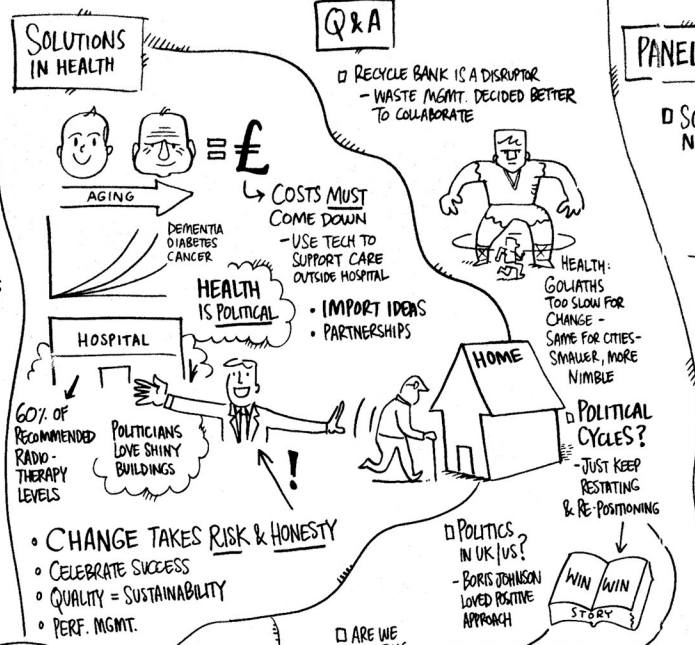 SOLUTIONS
IN HEALTH
AGING
= £
COSTS MUST
COME DOWN
- USE TECH TO
SUPPORT CARE
OUTSIDE HOSPITAL
DEMENTIA
DIABETES
CANCER
HEALTH
IS POLITICAL
• IMPORT IDEAS
• PARTNERSHIPS
HOSPITAL
60% OF
RECOMMENDED
RADIO-
THERAPY
LEVELS
POLITICIANS
LOVE SHINY
BUILDINGS
!
• CHANGE TAKES RISK & HONESTY
• CELEBRATE SUCCESS
• QUALITY = SUSTAINABILITY
• PERF. MGMT.
Q & A
RECYCLE BANK IS A DISRUPTOR
- WASTE MGMT. DECIDED BETTER
TO COLLABORATE
HEALTH:
GOLIATHS
TOO SLOW FOR
CHANGE -
SAME FOR CITIES -
SMALLER, MORE
NIMBLE
HOME
POLITICAL
CYCLES?
- JUST KEEP
RESTATING
& RE-POSITIONING
WIN WIN
STORY
POLITICS
IN UK/US?
- BORIS JOHNSON
LOVED POSITIVE
APPROACH
ARE WE
PANEL